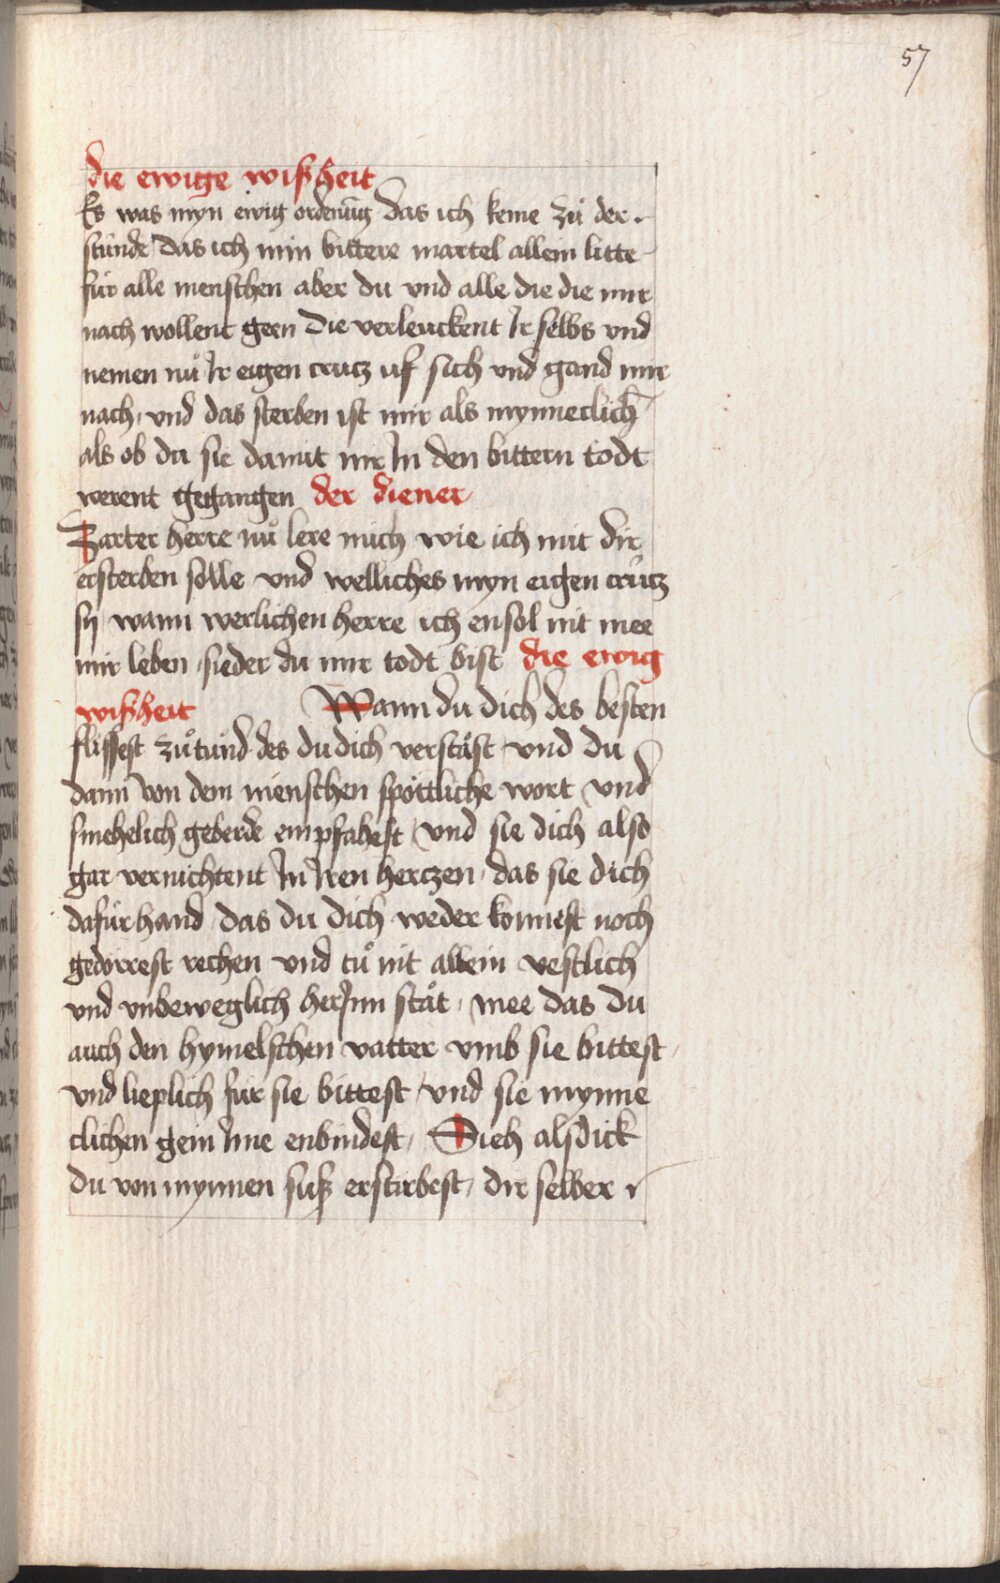 57
die ewige wißheit
Es was myn ewig ordenūg das ich keme zů der
stunde das ich min bittere martel allein litte
für alle menschen aber du und alle die die mir
nach wollent geen Die verleuckent Ir selbs vnd
nemen nů Ir eigen crutz uf sich vnd gand mir
nach, vnd das sterben ist mir als mynneclich
als ob du sie damit mir In den bittern todt
werent gegangen der diener
Zarter herre nů lere mich wie ich mit dir
ersterben solle vnd welliches myn eigen crütz
sÿ wann werlichen herre ich ensol nit mee
mir leben, sieder du mir todt bist die ewig
wißheit Wann du dich des besten
flissest zůtünd des du dich verstäst vnd du
dann von dem menschen spöttliche wort vnd
smehelich geberde empfahest, vnd sie dich also
gar vernichtent In Iren hertzen, das sie dich
dafür hand das du dich weder konnest noch
gedörrest rechen vnd tů nit allein vestlich
vnd vnbeweglich herInn stät, mee das du
auch den hymelschen vatter vmb sie bittest
vnd lieplich für sie bittest, vnd sie mynne
clichen gein Ime enbindest, Sieh als dick
du von mynnen suß erstirbest, dir selber